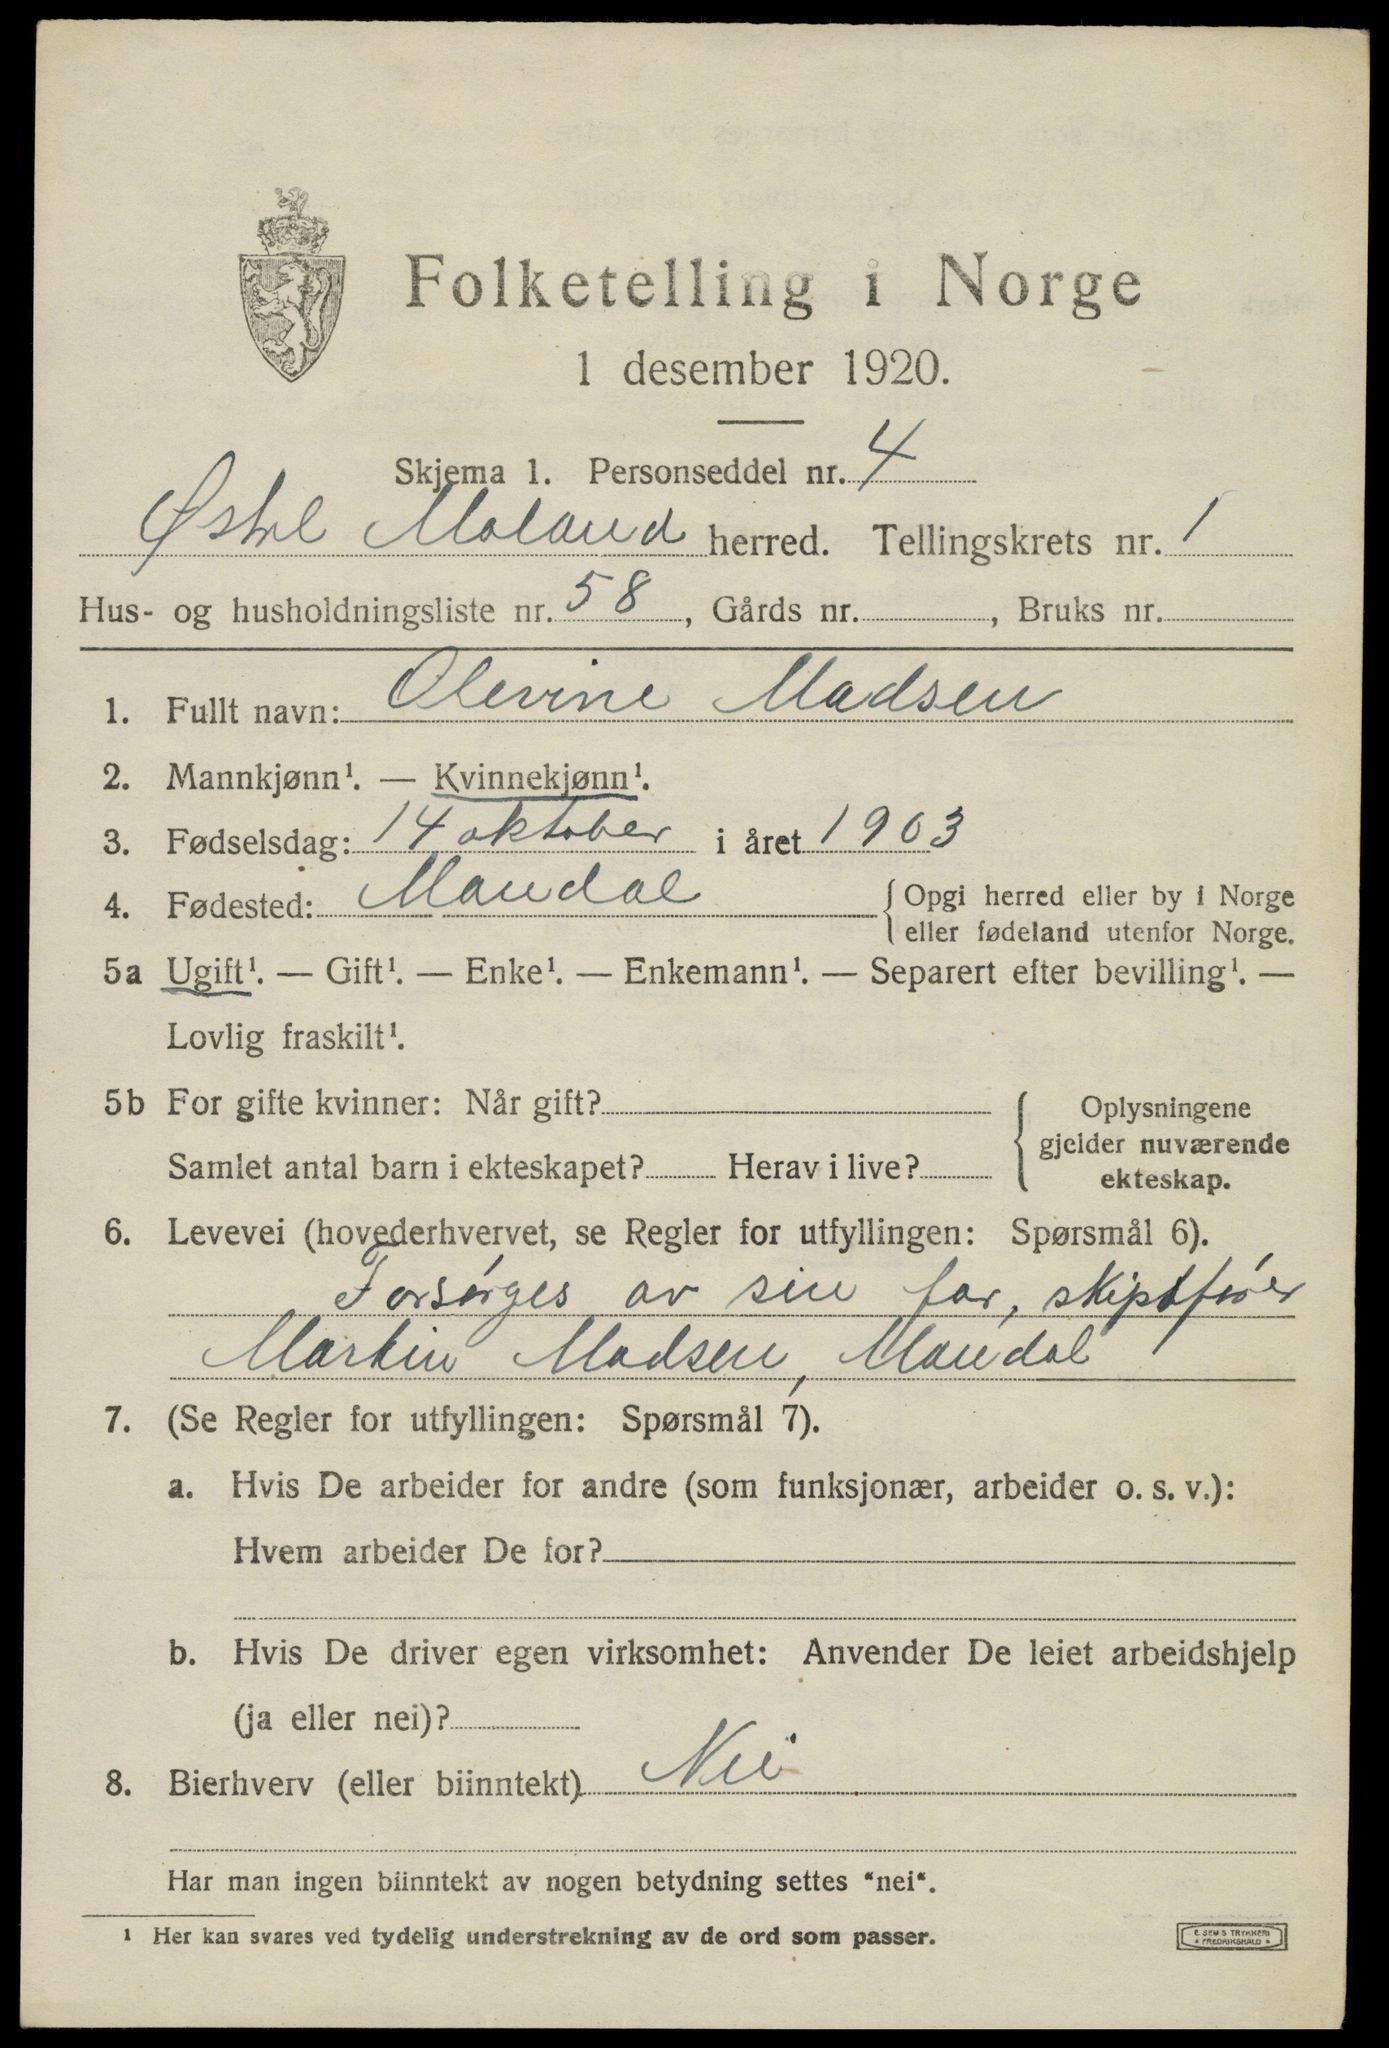 Folketelling i Norge
1 desember 1920.
Skjema 1. Personseddel nr. 4
Østre Moland herred. Tellingskrets nr. 1
Hus- og husholdningsliste nr. 58, Gårds nr. , Bruks nr.
1. Fullt navn: Olevine Madsen
2. Mannkjønn¹. — Kvinnekjønn¹.
3. Fødselsdag: 14 oktober i året 1903
4. Fødested: Mandal {Opgi herred eller by i Norge
eller fødeland utenfor Norge.
5a Ugift¹. — Gift¹. — Enke¹. — Enkemann¹. — Separert efter bevilling¹. —
Lovlig fraskilt¹.
5b For gifte kvinner: Når gift? { Oplysningene
gjelder nuværende
Samlet antal barn i ekteskapet? Herav i live? ekteskap.
6. Levevei (hovederhvervet, se Regler for utfyllingen: Spørsmål 6).
Forsørges av sin far, skipsfører
Martin Madsen, Mandal
7. (Se Regler for utfyllingen: Spørsmål 7).
a. Hvis De arbeider for andre (som funksjonær, arbeider o. s. v.):
Hvem arbeider De for?
b. Hvis De driver egen virksomhet: Anvender De leiet arbeidshjelp
(ja eller nei)?
8. Bierhverv (eller biinntekt) Nei
Har man ingen biinntekt av nogen betydning settes "nei".
¹ Her kan svares ved tydelig understrekning av de ord som passer.
E. SEM'S TRYKKERI
* FREDRIKSHALD *